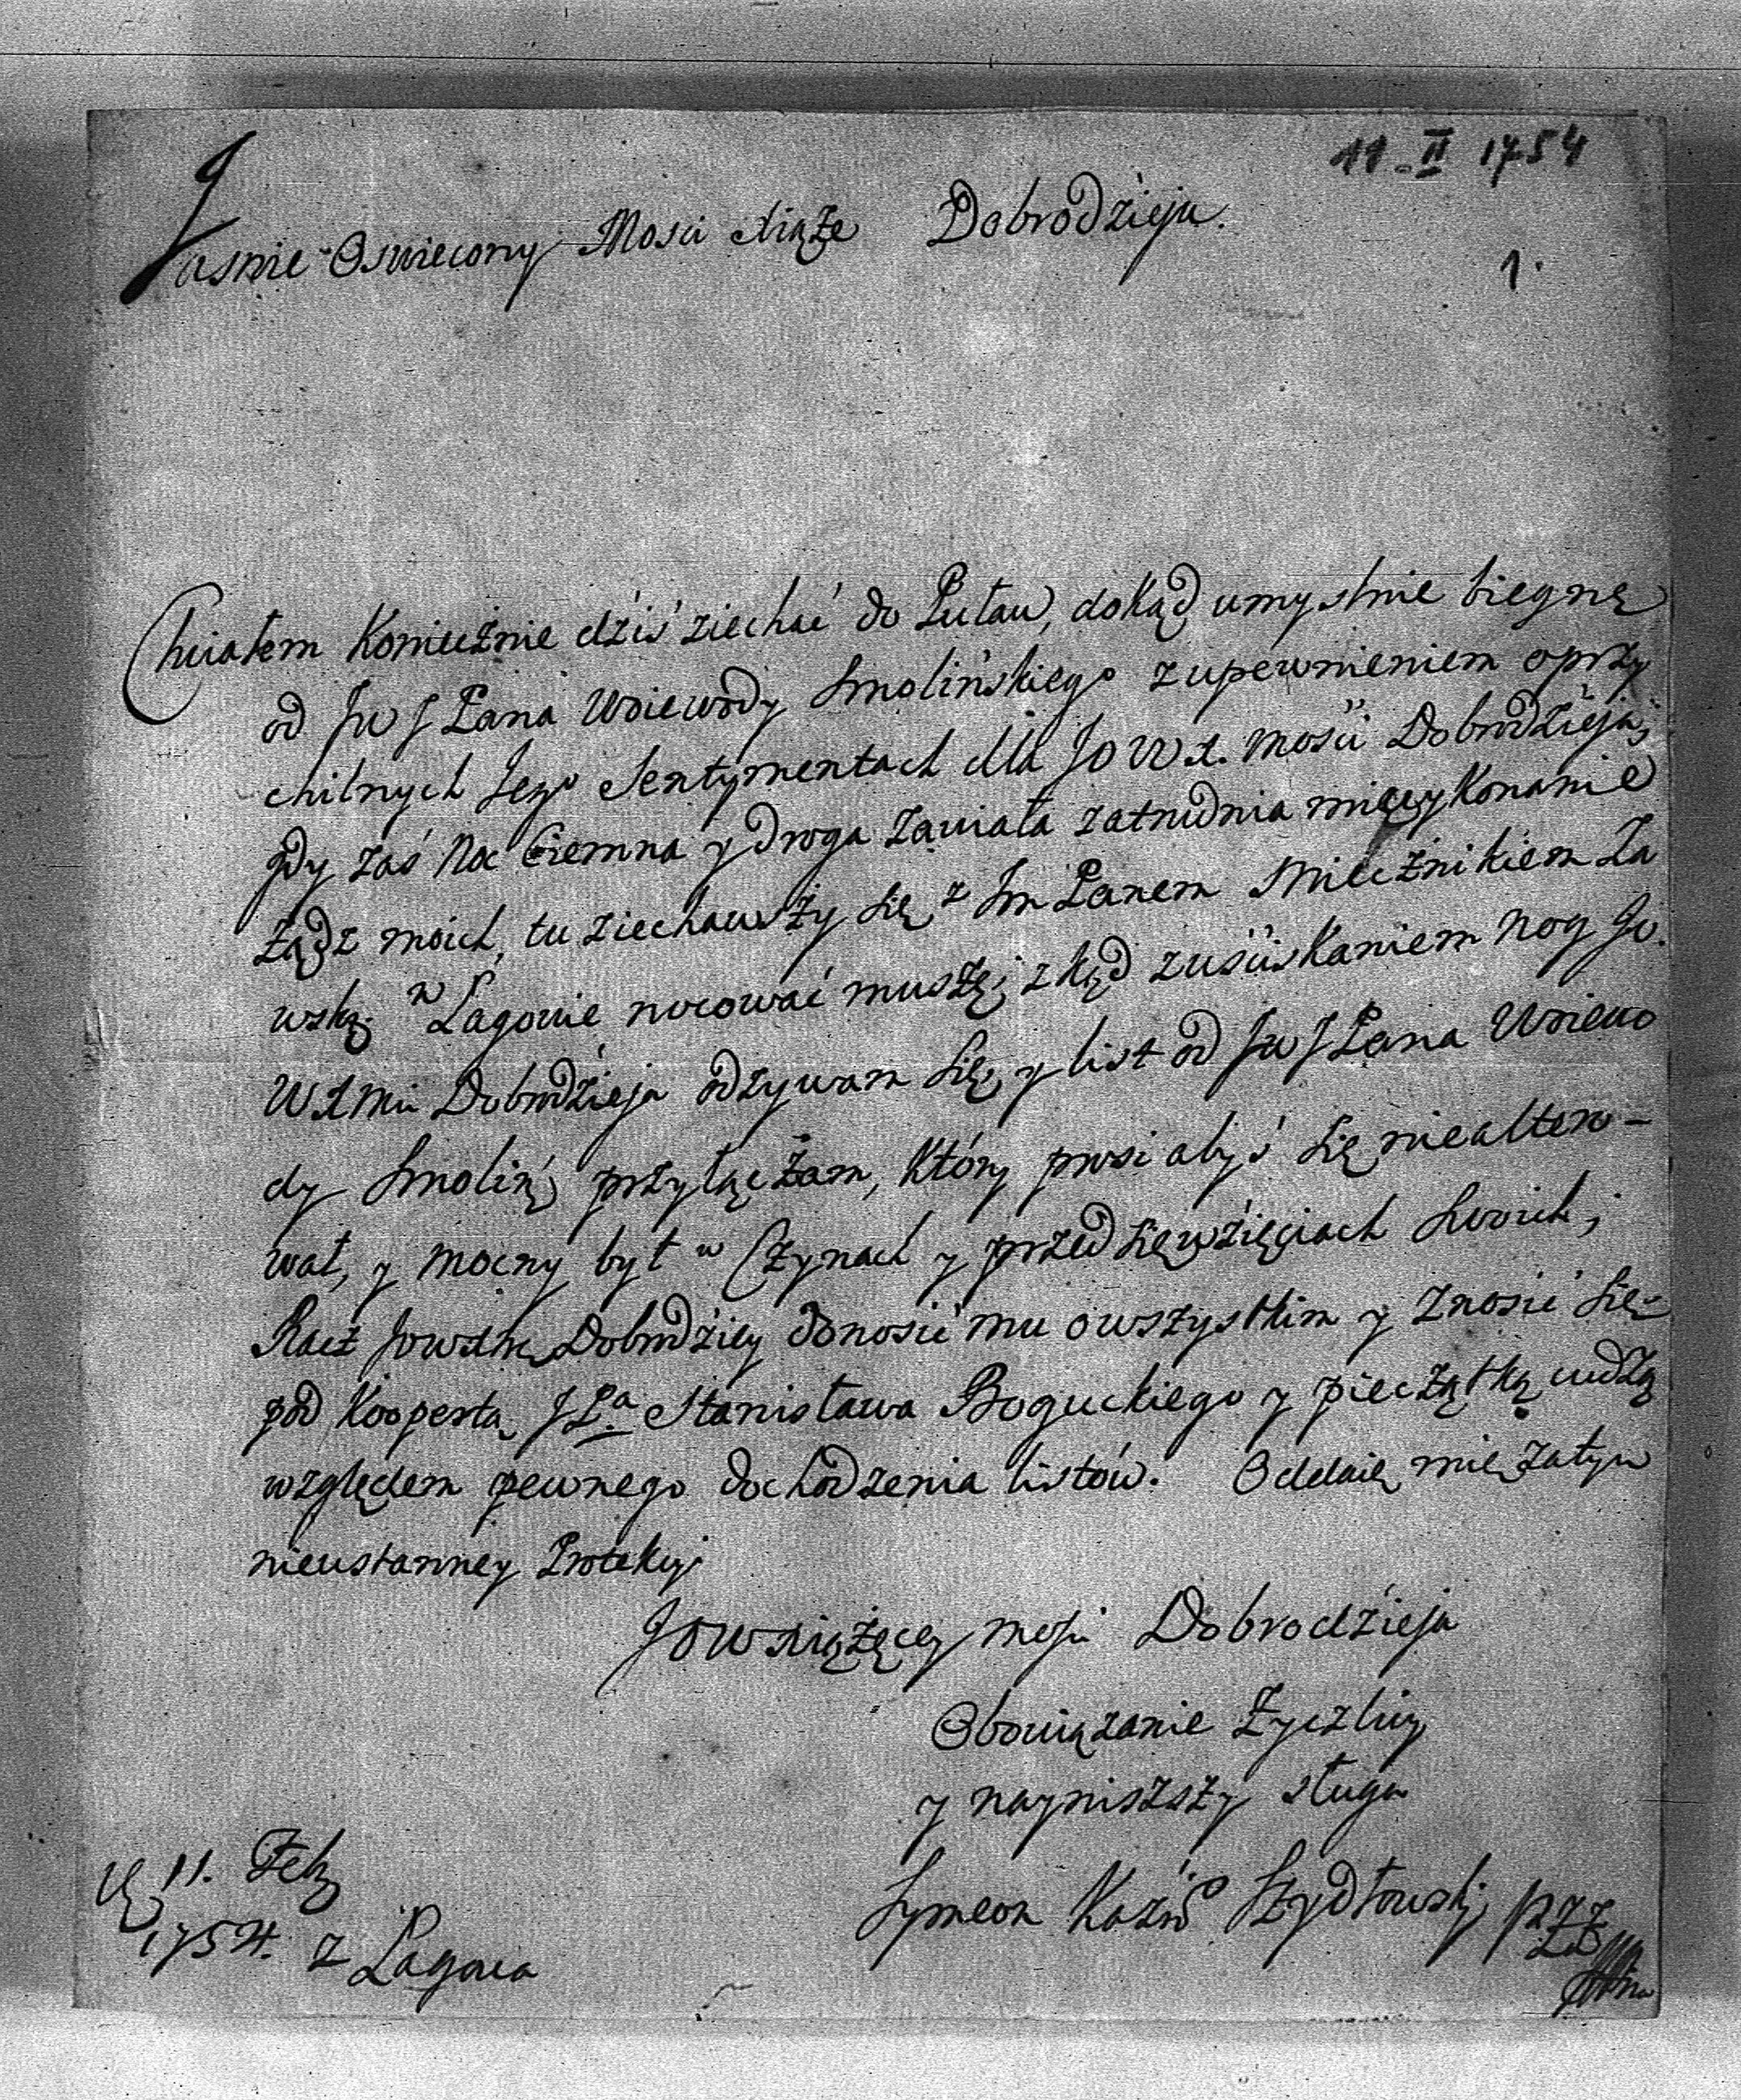 11. II 1754
Jasnie Oswiecony Mosci Xiąże Dobrodzieju.
1.
Chciałem Koniecznie dziś ziechać do Puław, dokąd umyslnie biegnę
od JW J Pana Woiewody Smolińskiego z upewnieniem o przy
chilnych Jego Sentymentach dla JO WX. Mosci Dobrodzieja,
gdy zaś Noc Ciemna y droga zawiała zatrudnia mięwykonanie
żądz moich, tu ziechawszy się z Jm Panem Miecznikiem Za
wsk. w Łagowie nocować muszę; zkąd z usciskaniem nog Jo.
WXMci Dobrodzieja odzywam się, y list od JW J Pana Woiewo
dy Smoliń przyłączam, który prosi abyś się niealtero-
wał, y mocny był w Czynach y przedsięwzięciach Swoich;
Racz JOWXM Dobrodziey donosić mu o wszystkim y znosić się
pod Koopertą JPa Stanisława Boguckiego y pieczątką cudzą
względem pewnego dochodzenia listów. Oddaię mię zatym
nieustanney Protekcyi
JOWXiążęcey Mości Dobrodzieja
Obowiązanie Życzliwy
y nayniszszy sługa
Symeon Kaźm Szydłowski
11. Feb
1754. z Łagowa